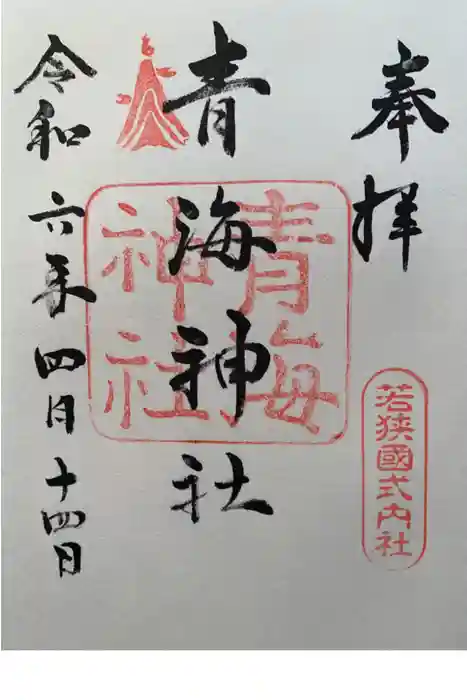 奉拝
若狭國式内社
青海神社
青海
神社
令和六年四月十四日